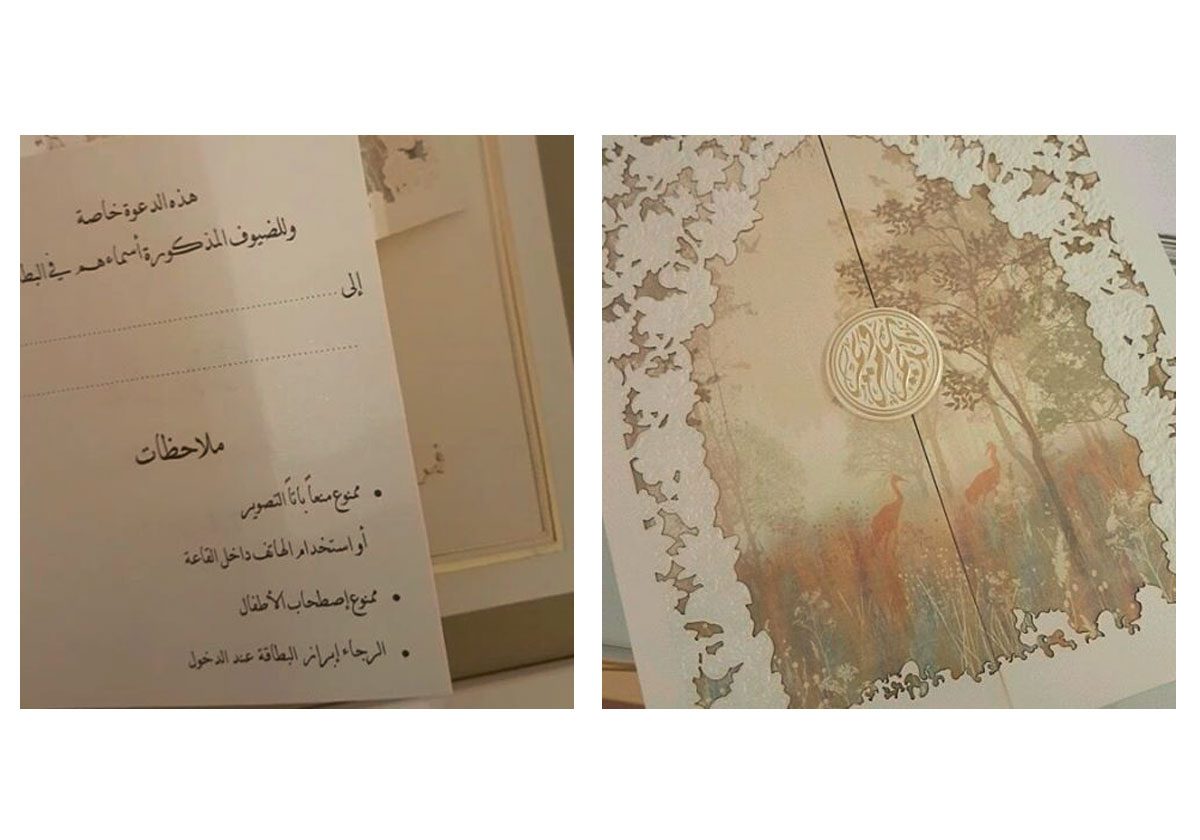 هذه الدعوة خاصة
وللضيوف المذكورة أسماءهم في
إلى
ملاحظات
• ممنوع منعاً باتاً التصوير
أو استخدام الهاتف داخل القاعة
• ممنوع إصطحاب الأطفال
• الرجاء إبراز البطاقة عند الدخول